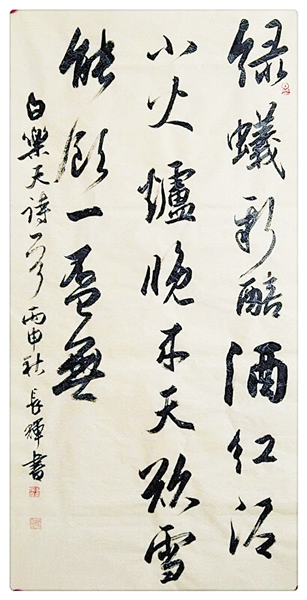 绿蟻新醅酒红泥
小火爐晚来天欲雪
能飲一盃無
白樂天詩一首丙申秋長輝書